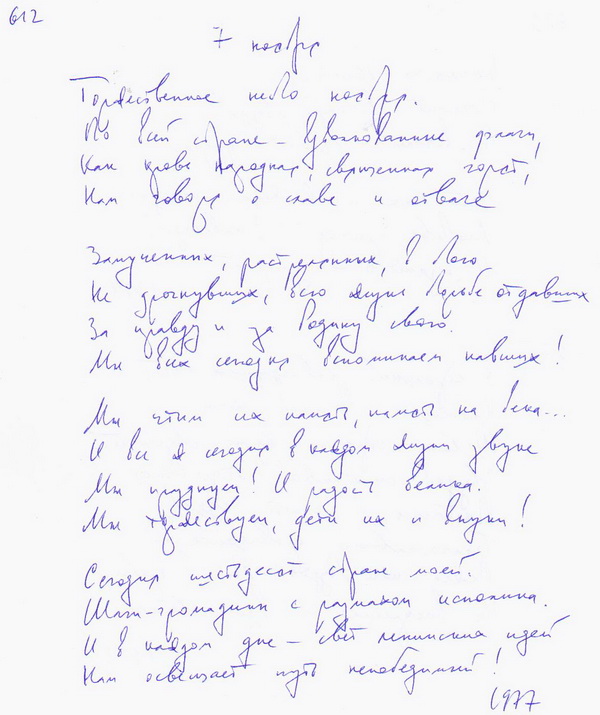 612
7 ноября
Торжественное небо ноября.
По всей стране – взволнованные флаги,
Как кровь народная, священная горят,
Нам говоря о славе и отваге
Замученных, расстрелянных, в бою
Не дрогнувших, всю жизнь борьбе отдавших
За правду и за Родину свою.
Мы всех сегодня вспоминаем павших!
Мы чтим их память, память на века...
И все ж сегодня в каждом жизни звуке
Мы празднуем! И радость велика.
Мы торжествуем, дети их и внуки!
Сегодня шестьдесят стране моей.
Шаги-громадины с размахом исполина.
И в каждом дне – свет ленинских идей
Нам освещает путь непобедимый!
1977